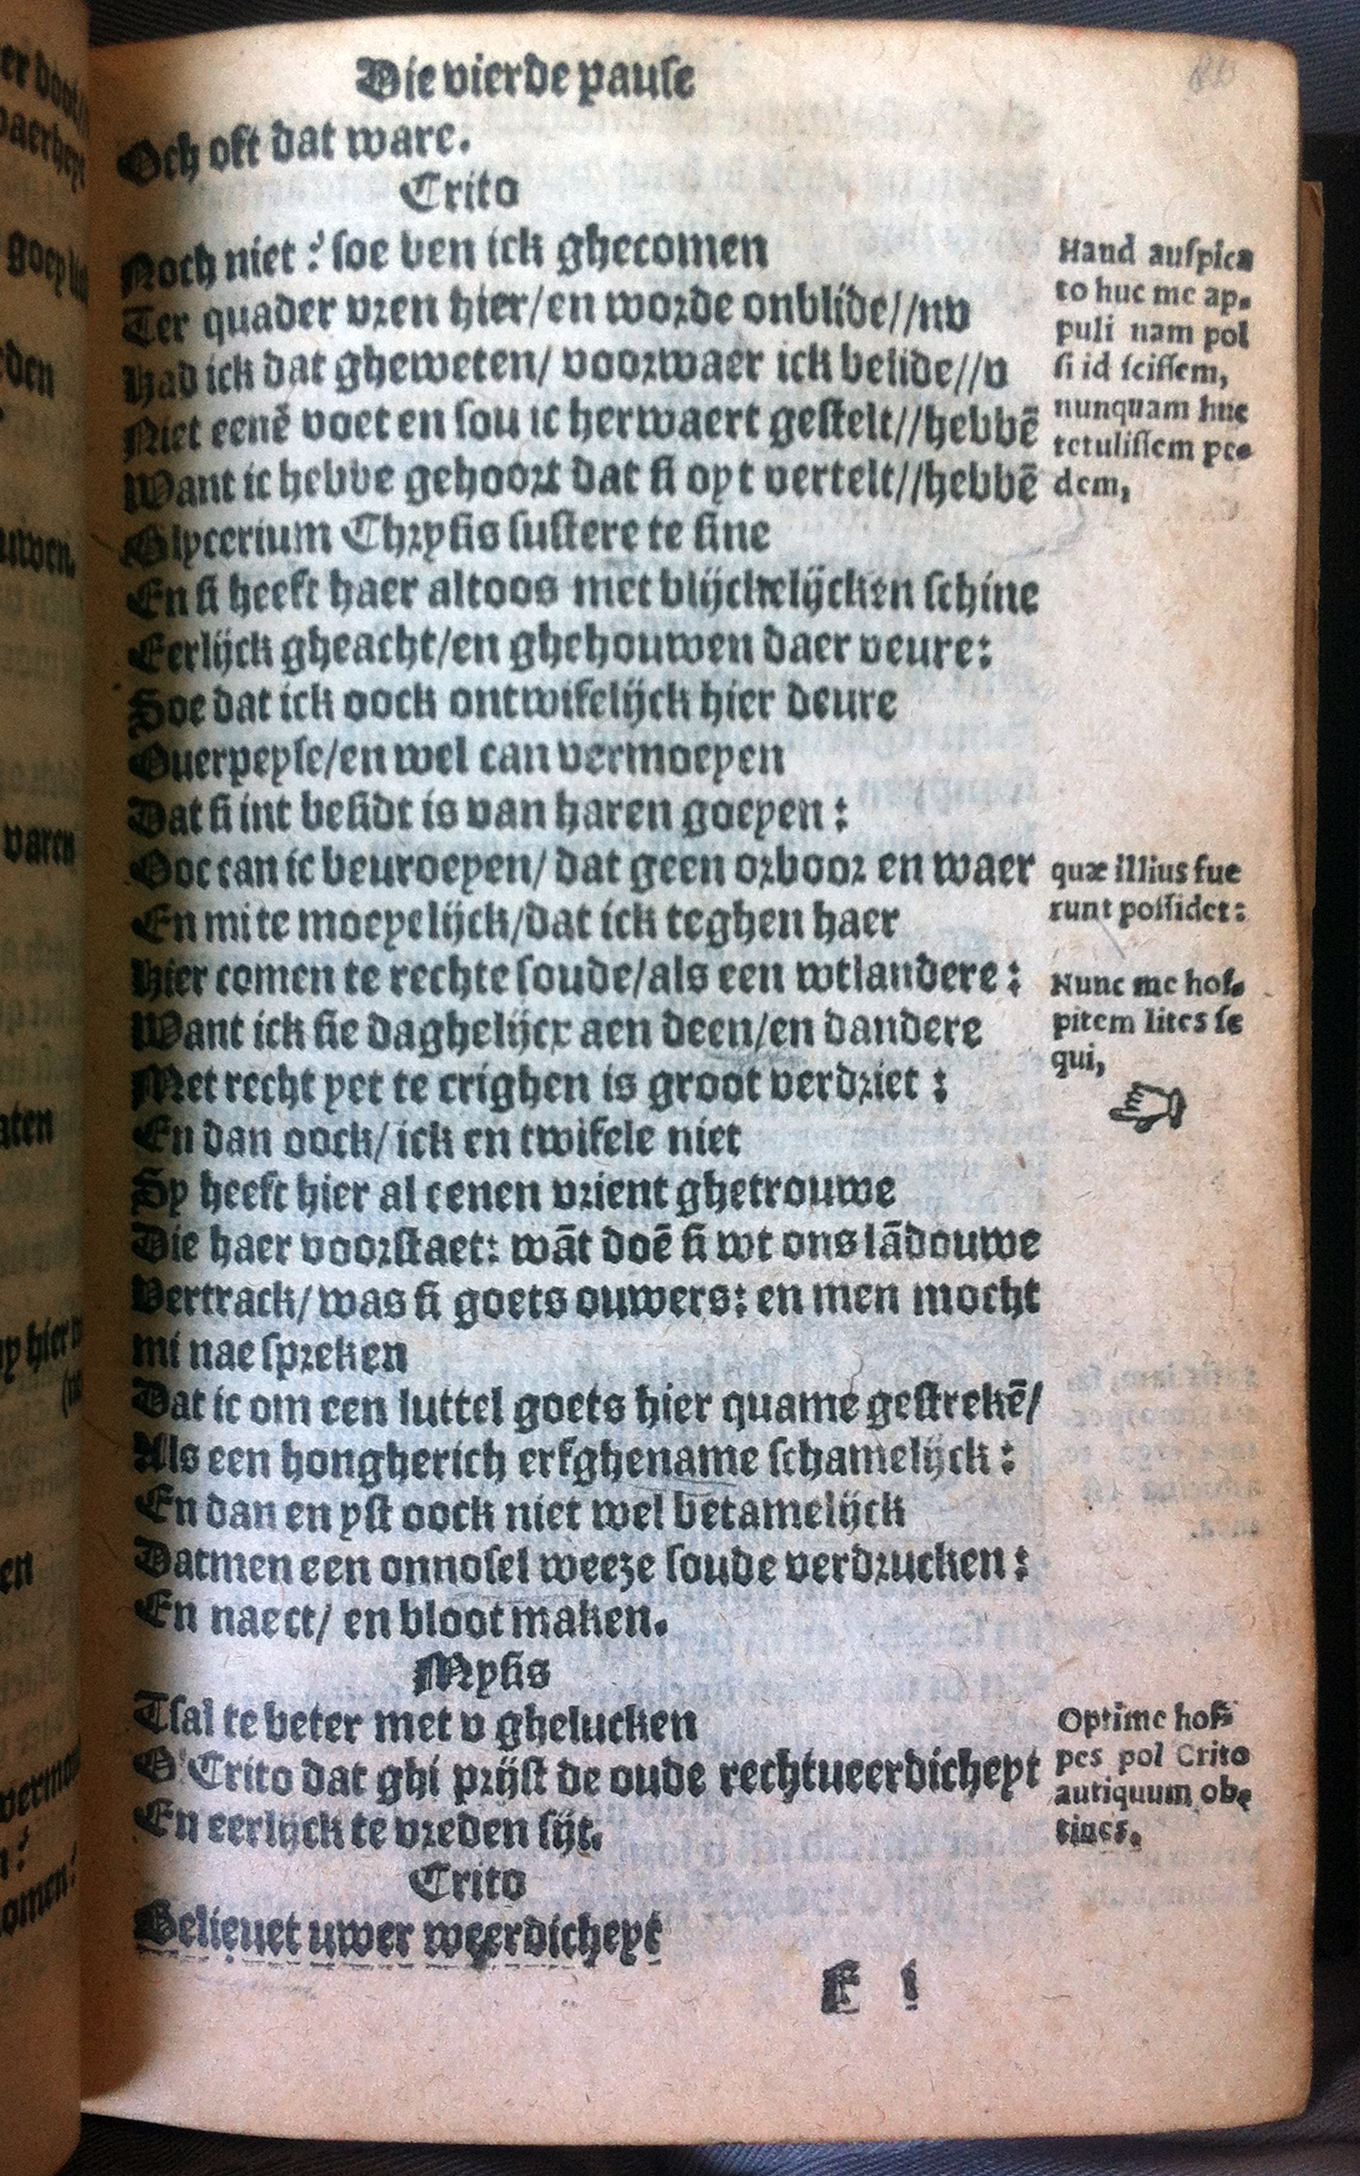 Die vierde pause
Och oft dat ware.
Crito
Noch niet? soe ben ick ghecomen
Ter quader vren hier/en worde onblide//nv
Had ick dat gheweten/ voorwaer ick belide//v
Niet eenē voet en sou ic herwaert gestelt//hebbē
Want ic hebbe gehoort dat si oyt vertelt//hebbē
Glycerium Chrysis sustere te sine
En si heeft haer altoos met blijckelijcken schine
Eerlijck gheacht/en ghehouwen daer veure:
Soe dat ick oock ontwifelijck hier deure
Ouerpeyse/en wel can vermoeyen
Dat si int besidt is van haren goeyen:
Ooc can ic beuroeyen/ dat geen orboor en waer
En mi te moeyelijck/dat ick teghen haer
Hier comen te rechte soude/als een wtlandere:
Want ick sie daghelijcx aen deen/en dandere
Met recht yet te crighen is groot verdriet:
En dan oock/ ick en twifele niet
Sy heeft hier al eenen vrient ghetrouwe
Die haer voorstaet: wāt doē si wt ons lādouwe
Vertrack/ was si goets ouwers: en men mocht
mi nae spreken
Dat ic om een luttel goets hier quame gestrekē/
Als een hongherich erfghename schamelijck:
En dan en yst oock niet wel betamelijck
Datmen een onnosel weeze soude verdrucken:
En naect/ en bloot maken.
Mysis
Tsal te beter met v ghelucken
O Crito dat ghi prijst de oude rechtueerdicheyt
En eerlijck te vreden sijt.
Crito
Belieuet uwer weerdicheyt
F i
Haud auspica
to huc me ap-
puli nam pol
si id scissem,
nunquam huc
tetulissem pe-
dem,
quæ illius fue
runt possidet:
Nunc me hos-
pitem lites se
qui,
Optime hos-
pes pol Crito
autiquum ob-
tines.